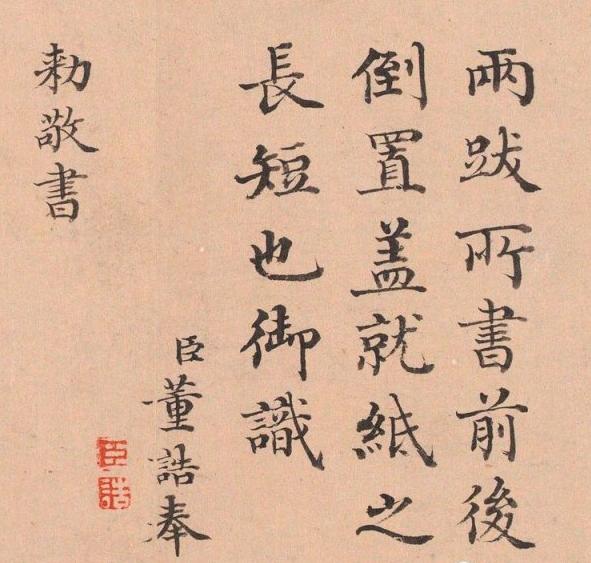 兩跋所書前後
倒置盖就紙之
長短也御識
臣董誥奉
勅敬書
臣誥